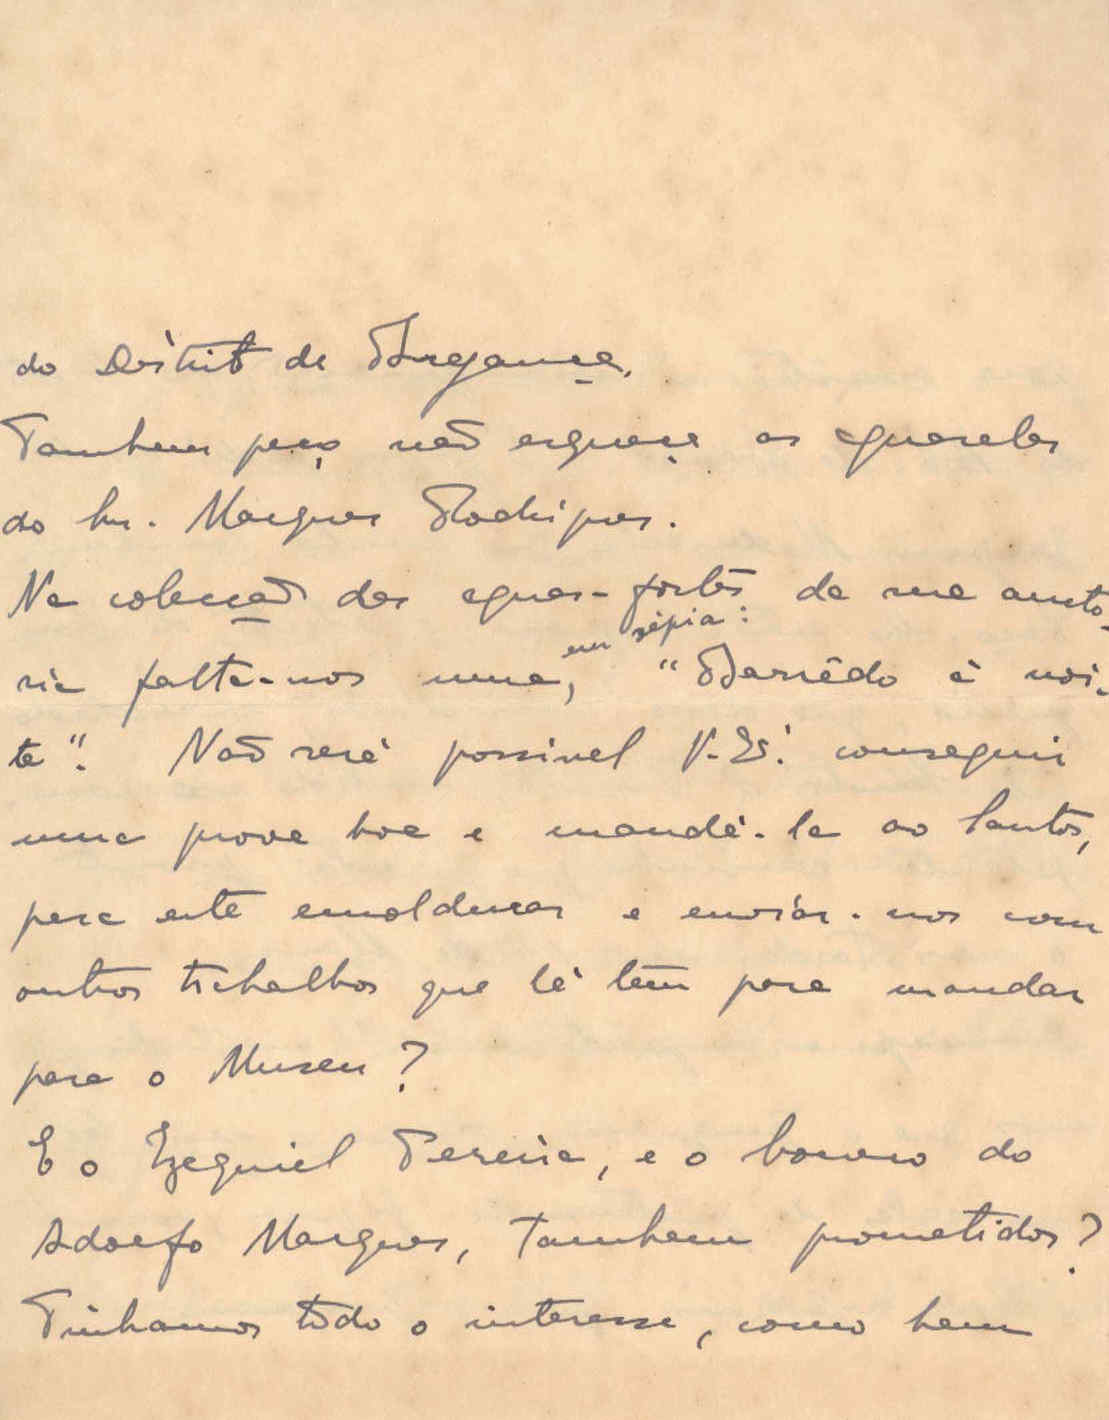 do Distrito de Bragança.
Tambem peço não esqueça as aguarelas
do Snr. Marques Rodrigues.
Na colecção das aguas-fortes de sua auto-
ria falta-nos uma, em sépia: "Barrêdo á noi-
te". Não será possivel V. Ex.ª conseguir
uma prova boa e mandá-la ao Santos,
para este emoldurar e enviar-nos com
outros trabalhos que lá tem para mandar
para o Museu?
E o Ezequiel Pereira, e o bronco do
Adolfo Marques, tambem prometidos?
Tinhamos todo o interesse, como bem